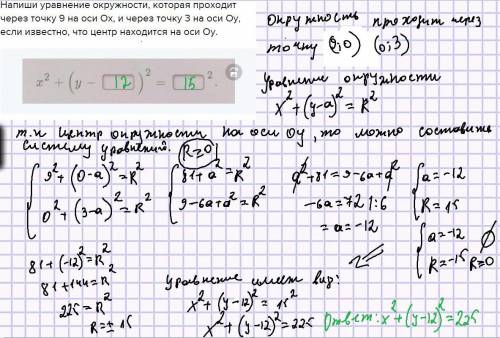 Напиши уравнение окружности, которая проходит
через точку 9 на оси Ox, и через точку 3 на оси Oy,
если известно, что центр находится на оси Oy.
x² + (y − 12)² = 15².
Окружность проходит через
точку (9;0) (0;3)
Уравнение окружности
x² + (y-a)² = R²
т.к центр окружности на оси Oy, то можно составить
систему уравнений. R≥0
{ 9² + (0-a)² = R²
0² + (3-a)² = R²
{ 81 + a² = R²
9 - 6a + a² = R²
a² + 81 = 9 - 6a + a²
-6a = 72 | :6
= a = -12
{ a = -12
R = 15
{ a = -12
R = -15 R≥0 ∅
81 + (-12)² = R²
81 + 144 = R²
225 = R²
R = ± 15
Уравнение имеет вид:
x² + (y-12)² = 15²
x² + (y-12)² = 225
Ответ: x² + (y-12)² = 225